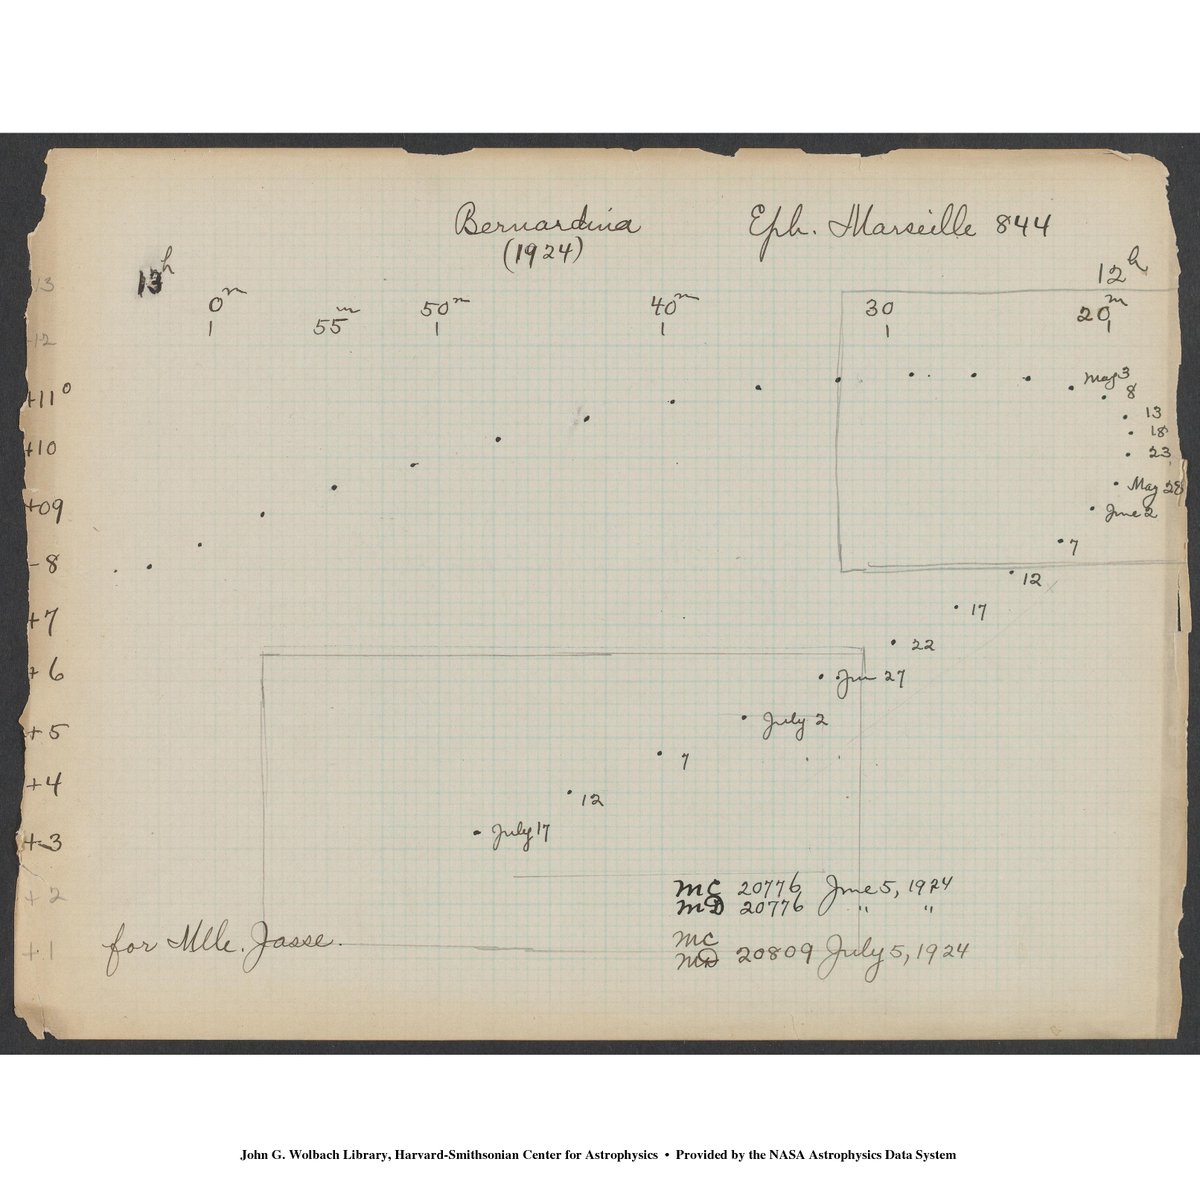 Bernardina Eph. Marseille 844
(1924)
13h 12h
0m 55m 50m 40m 30 20m
13
12
+11°
+10
+09
-8
+7
+6
+5
+4
+3
+2
+1
May 3
8
13
18
23
May 28
June 2
7
12
17
22
Jun 27
July 2
7
12
July 17
MC 20776 June 5, 1924
MD 20776 " "
MC
MD 20809 July 5, 1924
for Mlle. Jasse.
John G. Wolbach Library, Harvard-Smithsonian Center for Astrophysics • Provided by the NASA Astrophysics Data System